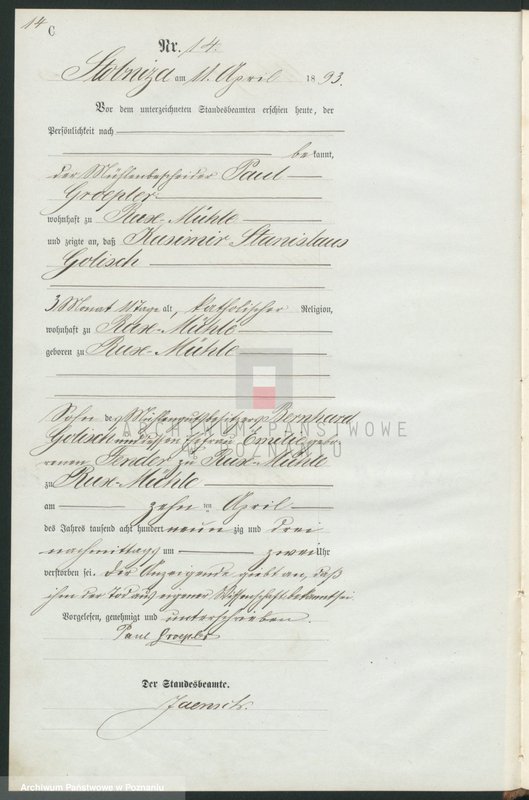 14
C
Nr. 14.
Stobniza am 11. April 1893.
Vor dem unterzeichneten Standesbeamten erschien heute, der
Persönlichkeit nach
bekannt,
der Mühlenbescheider Paul
Groepler
wohnhaft zu Rux-Mühle
und zeigte an, daß Kasimir Stanislaus
Golisch
3 Monat alt, katholischer Religion,
wohnhaft zu Rux-Mühle
geboren zu Rux-Mühle
Sohn des Mühlengutsbesitzers Bernhard
Golisch und dessen Ehefrau Emilie gebo-
renen zu Rux-Mühle
zu Rux-Mühle
am zehnten April
des Jahres tausend acht hundert neunzig und drei
nachmittags um zwei Uhr
verstorben sei. Der Anzeigende giebt an, daß
ihm der Tod aus eigener Wissenschaft bekannt sei.
Vorgelesen, genehmigt und unterschrieben.
Paul Groepler
Der Standesbeamte.
ARCHIWUM PAŃSTWOWE
W POZNANIU
Archiwum Państwowe w Poznaniu